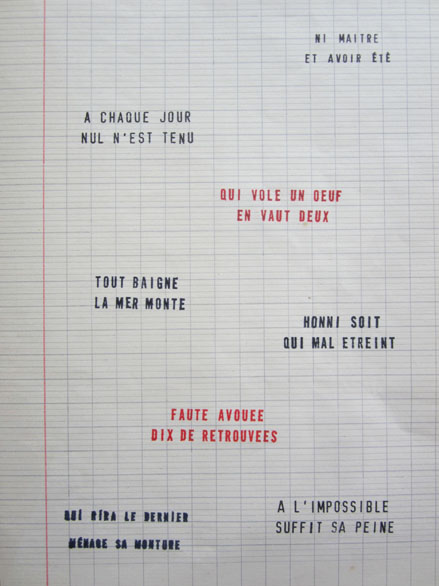 NI MAITRE
ET AVOIR ÉTÉ
A CHAQUE JOUR
NUL N'EST TENU
QUI VOLE UN OEUF
EN VAUT DEUX
TOUT BAIGNE
LA MER MONTE
HONNI SOIT
QUI MAL ETREINT
FAUTE AVOUEE
DIX DE RETROUVEES
A L'IMPOSSIBLE
SUFFIT SA PEINE
QUI RIRA LE DERNIER
MÉNAGE SA MONTURE